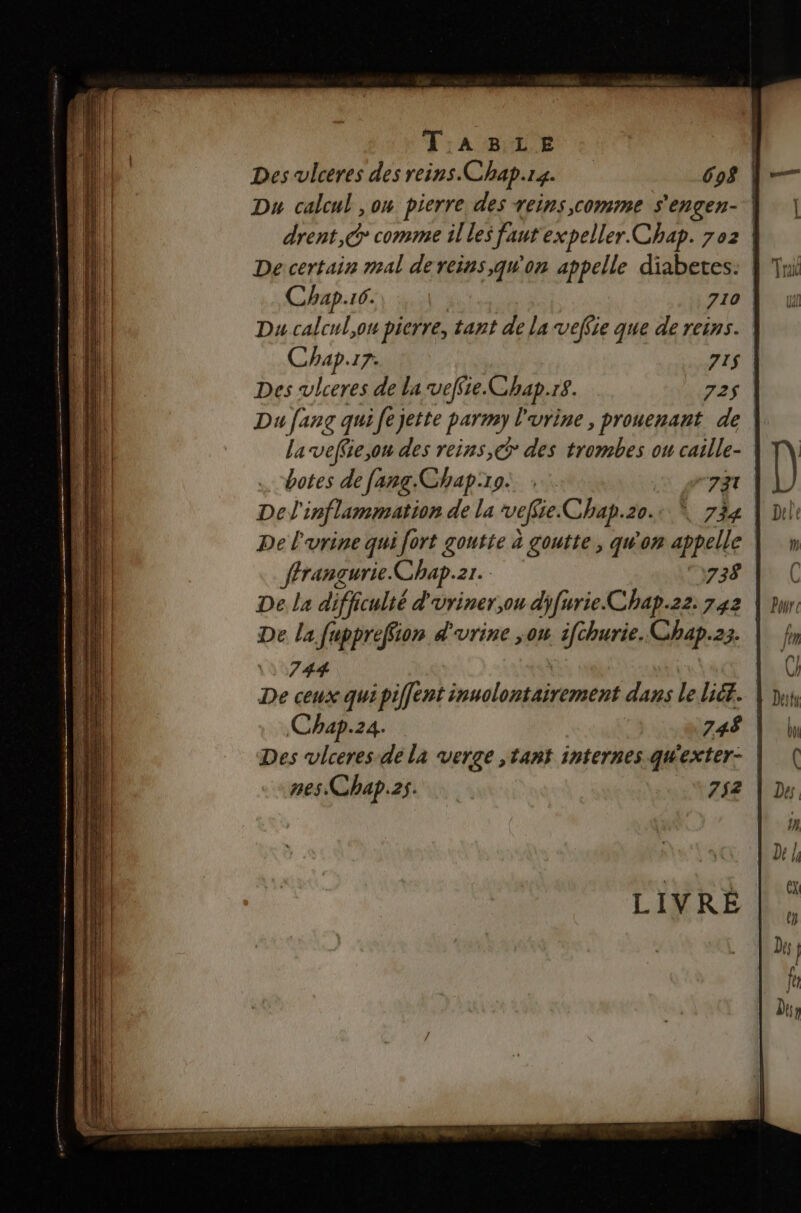 TABLE
Des vlceres des reins.Chap.14. 698
Du calcul, ou pierre des reins, comme s'engen-
drent, & comme il les faut expeller.Chap. 702
De certain mal de reins, qu'on appelle diabetes.
Chap.16. 710
Du calcul, ou pierre, tant de la veſſie que de reins.
Chap.17. 715
Des vlceres de la veſſie.Chap.18. 725
Du ſang qui ſe jette parmy l'vrine, prouenant de
la veſſie, ou des reins, & des trombes ou caille-
botes de ſang.Chap.19. 731
De l'inflammation de la veſſie.Chap.20. 734
De l'vrine qui ſort goutte à goutte, qu'on appelle
ſtrangurie.Chap.21. 738
De la difficulté d'vriner, ou dyſurie.Chap.22. 742
De la ſuppreſſion d'vrine, ou iſchurie. Chap.23.
744
De ceux qui piſſent inuolontairement dans le lict.
Chap.24. 748
Des vlceres de la verge, tant internes qu'exter-
nes.Chap.25. 752
LIVRE